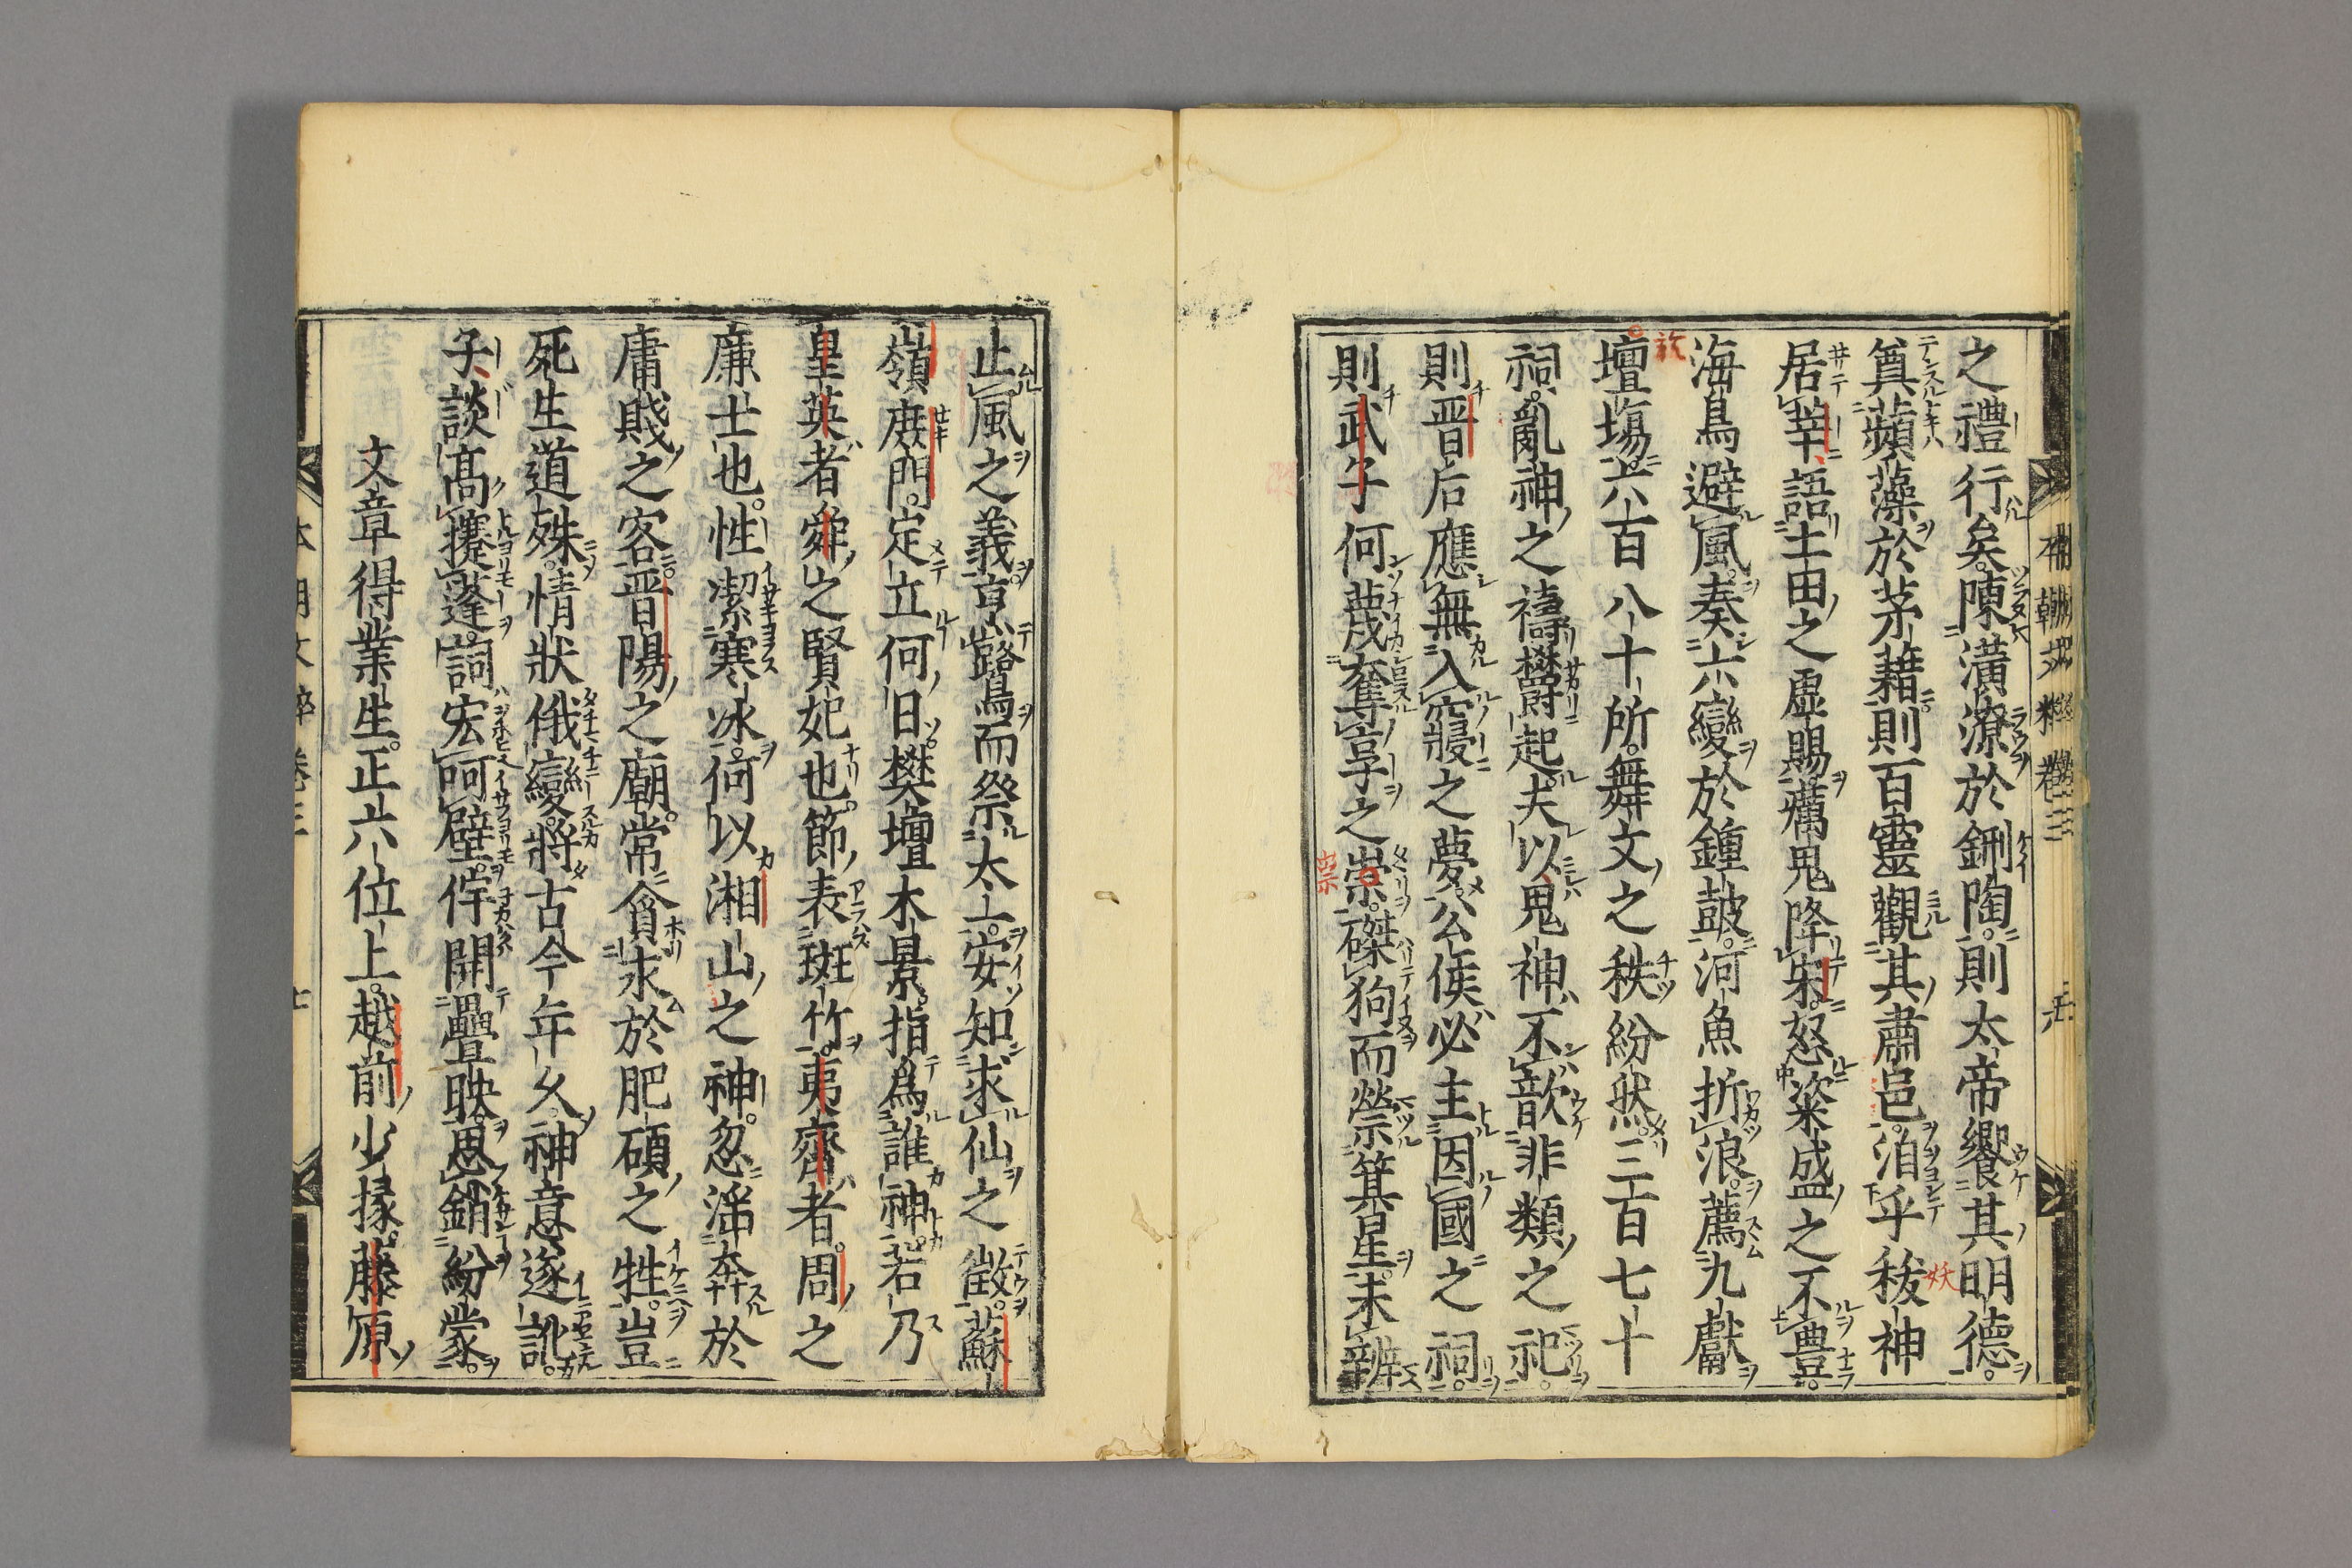 之禮行矣。陳潢潦於鉶陶。則太帝饗其明德。
奠蘋藻於茅藉。則百靈觀其肅邑。洎乎秡神
居莘。語土田之虛賜。癘鬼降宋。怒粢盛之不豊。
海鳥避風。奏六變於鍾鼓。河魚折浪。薦九獻
壇塲。六百八十所。舞文之秩紛然。三百七十
祠。亂神之禱欝起。夫以鬼神不歆非類之祀。
則晋后應無入寢之夢。公侯必主因國之祠。
則武子何蔑奪享之祟。磔狗而禜箕星。未辨
止風之義。烹鷺而祭太上。安知求仙之徵。蘇
嶺庻門。定立何日。樊壇木景。指爲誰神。若乃
皇英者。舜之賢妃也。節表斑竹。夷齊者。周之
廉士也。性潔寒冰。何以湘山之神。忽淫奔於
庸賤之客。晋陽之廟。常貪求於肥碩之牲。豈
死生道殊。情狀俄變。將古今年久。神意遂訛。
子談高攓蓬。詞宏呵壁。佇開疊映。思銷紛蒙。
文章得業生。正六位上。越前少掾。藤原
本朝文粹卷三